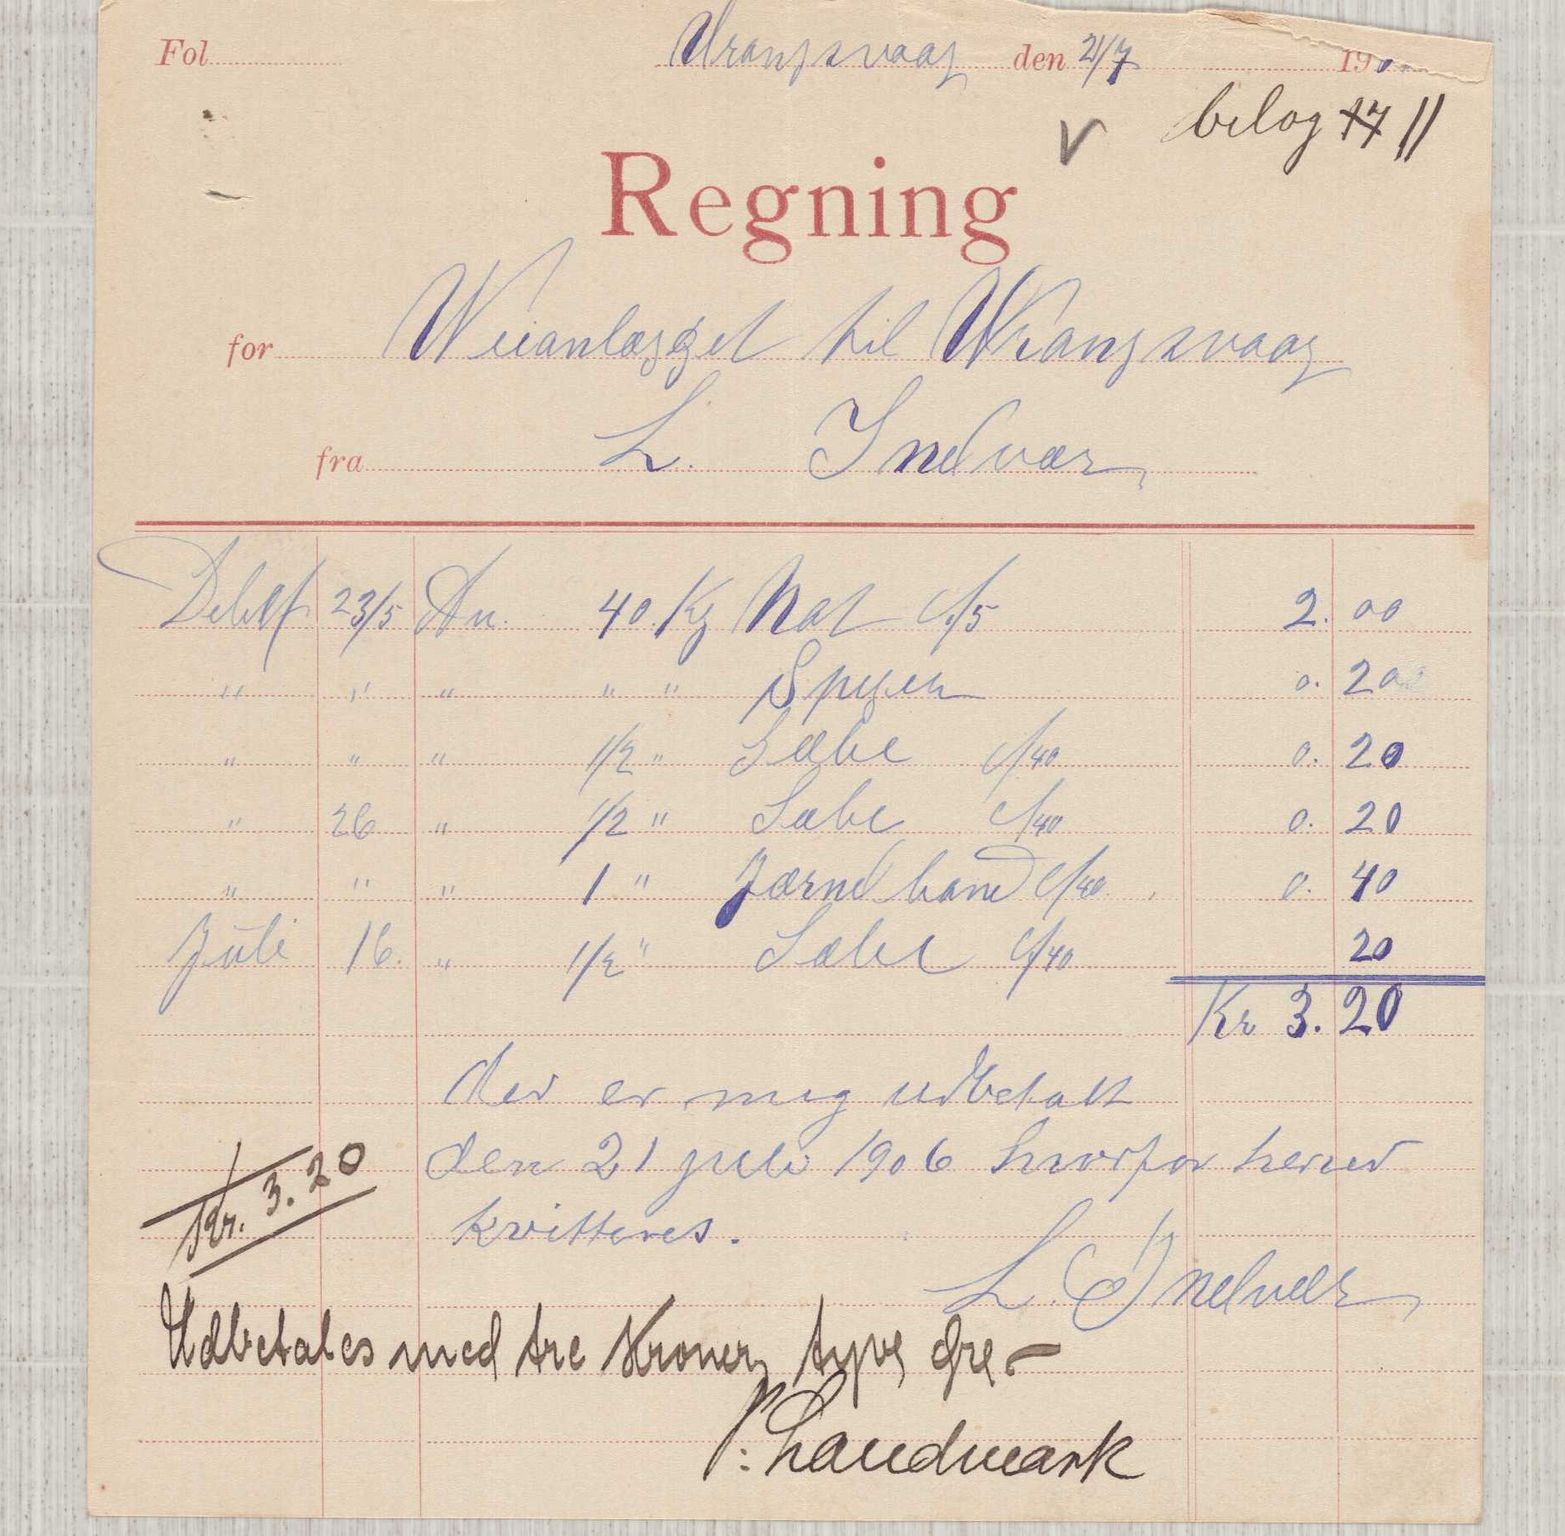 Fol Vrangsvaag den 21/7 190
bilag 17 11
Regning
for Veianlægget til Vrangsvaag
fra L. Indvær
Debet 23/5 An. 40 Kg c/5 2.00
" " " " " Spiger 0.20
" " " 1/2 " Sæbe c/40 0.20
" 26 " 1/2 " Sæbe c/40 0.20
" " " 1 " c/40 0.40
Juli 16. " 1/2 " Sæbe c/40 20
Kr 3.20
der er mig udbetalt
den 21 juli 1906 hvorfor herved
kvitteres.
Kr. 3.20
L. Indvær
Udbetales med tre Kroner, tyve Øre –
P. Landmark